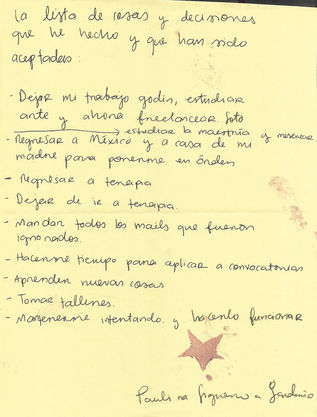 La lista de cosas y decisiones
que he hecho y que han sido
aceptadas:
- Dejar mi trabajo godín, estudiar
arte y ahora freelancear foto
→ estudiar la maestría y
- Regresar a México y a casa de mi
madre para ponerme en órden
- Regresar a terapia
- Dejar de ir a terapia.
- Mandar todos los mails que fueron
ignorados.
- Hacerme tiempo para aplicar a convocatorias
- Aprender nuevas cosas
- Tomar talleres.
- Mantenerme intentando y hacerlo funcionar
Paulina